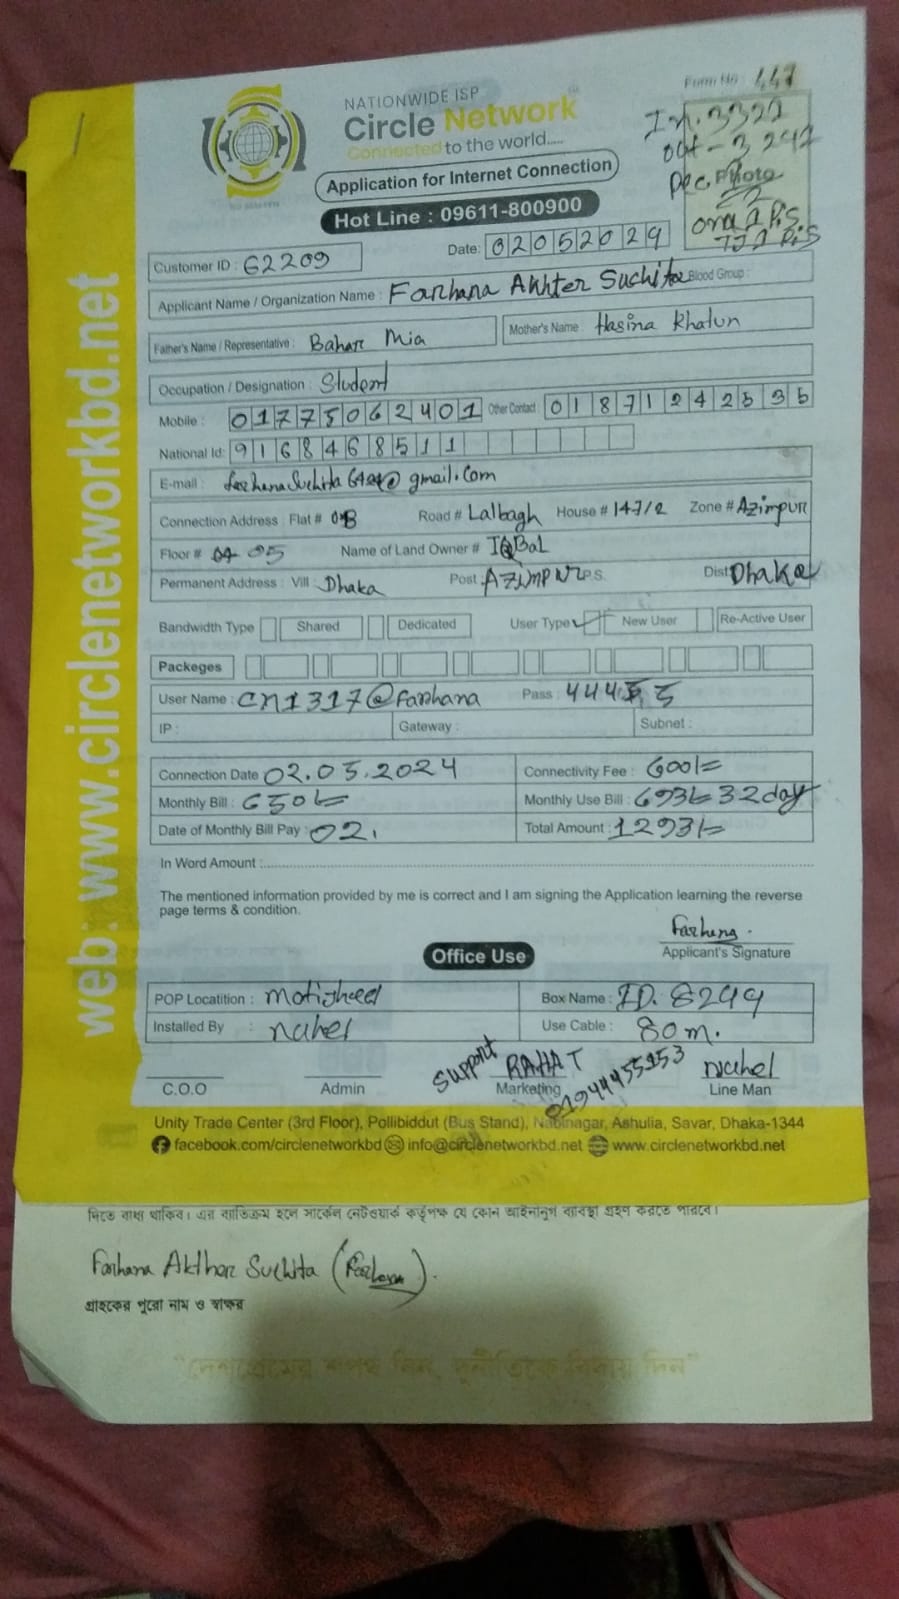 Form No : 447
NATIONWIDE ISP
Circle Network
Connected to the world.....
Application for Internet Connection
Hot Line : 09611-800900
In. 3322
out - 3 242
Photo
onu 1 Pis
Customer ID : 62209
Date: 02052024
Applicant Name / Organization Name : Farhana Akhter Suchita Blood Group :
Father's Name / Representative : Bahar Mia Mother's Name : Hasina Khatun
Occupation / Designation : Student
Mobile : 01775062401 Other Contact : 018712425
National Id: 9168468511
E-mail : @gmail.com
Connection Address : Flat # Road # Lalbagh House # 147/2 Zone # Azimpur
Floor # 05 Name of Land Owner # IQBaL
Permanent Address : Vill : Dhaka Post : AZIMPUR P.S. Dist: Dhaka
Bandwidth Type Shared Dedicated User Type ✓ New User Re-Active User
Packeges
User Name : CN1317@farhana Pass :
IP : Gateway : Subnet :
Connection Date 02.05.2024 Connectivity Fee : 600/=
Monthly Bill : 650/= Monthly Use Bill : 693/= 32day
Date of Monthly Bill Pay : 02. Total Amount : 1293/=
In Word Amount :
The mentioned information provided by me is correct and I am signing the Application learning the reverse
page terms & condition.
Applicant's Signature
Office Use
POP Locatition : motijheel Box Name : ID. 8249
Installed By : Use Cable : 80m.
Support RAHAT 01944455153
C.O.O Admin Marketing Line Man
Unity Trade Center (3rd Floor), Pollibiddut (Bus Stand), Nabinagar, Ashulia, Savar, Dhaka-1344
facebook.com/circlenetworkbd info@circlenetworkbd.net www.circlenetworkbd.net
web : www.circlenetworkbd.net
দিতে বাধ্য থাকিব। এর ব্যতিক্রম হলে সার্কেল নেটওয়ার্ক কর্তৃপক্ষ যে কোন আইনানুগ ব্যবস্থা গ্রহণ করতে পারবে।
Farhana Akther Suchita (Farhana).
গ্রাহকের পুরো নাম ও স্বাক্ষর
"দেশপ্রেমের শপথ নিন, দুর্নীতিকে বিদায় দিন"